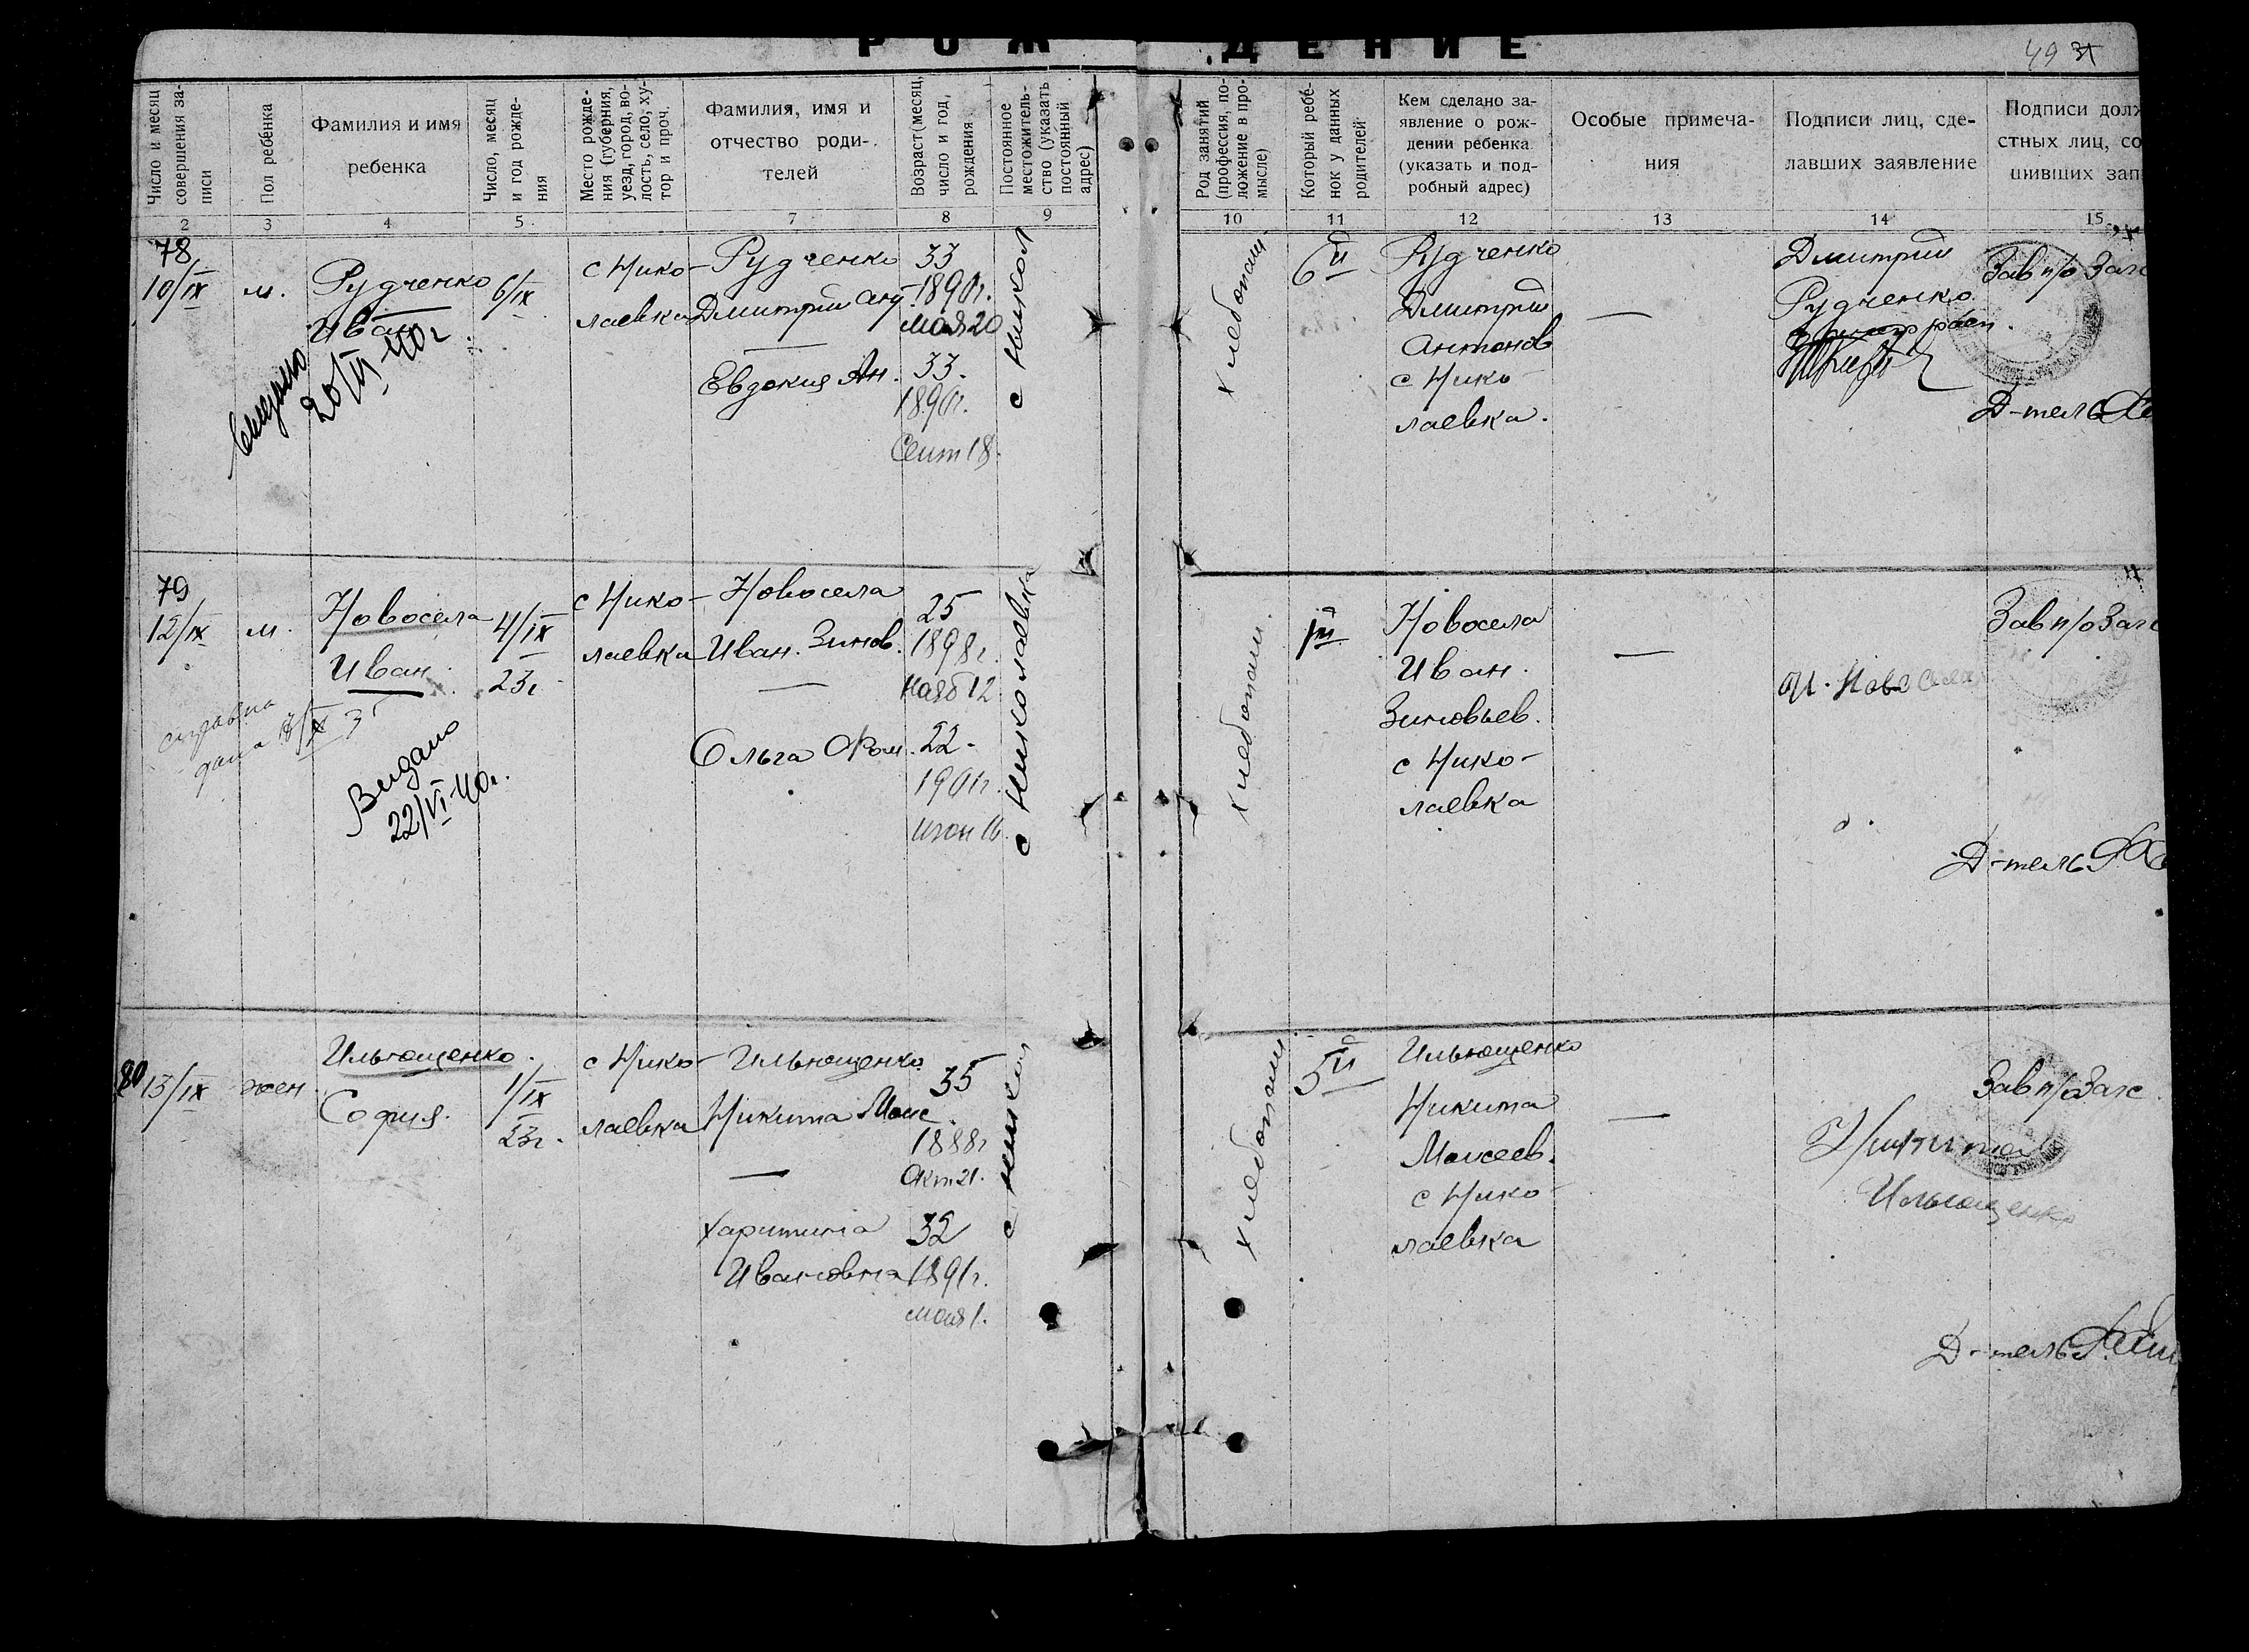 РОЖДЕНИЕ
49
Число и месяц совершения записи
Пол ребенка
Фамилия и имя
ребенка
Число, месяц и год рождения
Место рождения (губерния, уезд, город, волость, село, хутор и проч.
Фамилия, имя и
отчество роди-
телей
Возраст (месяц, число и год, рождения
Постоянное местожительство (указать постоянный адрес)
Род занятий (профессия, положение в промысле)
Который ребенок у данных родителей
Кем сделано за-
явление о рож-
дении ребенка
(указать и под-
робный адрес)
Особые примеча-
ния
Подписи лиц, сде-
лавших заявление
Подписи долж
стных лиц, со
шивших зап
2 3 4 5 7 8 9 10 11 12 13 14 15
78
10/IX
м.
Рудченко
Иван
6/IX
с Нико-
лаевка
Рудченко
Дмитрий Ант.
33
1890г.
мая 20
Евдокия Ан.
33.
1890г.
Сент 18.
с Никол
20/VI 40г
хлебопаш.
6й
Рудченко
Дмитрий
Антонов
с Нико-
лаевка.
—
Дмитрий
Рудченко.
Зав п/о Загс
Д-тель
79
12/IX
м.
Новосела
Иван.
4/IX
23г
с Нико-
лаевка
Новосела
Иван. Зинов.
25
1898г.
Нояб 12
Ольга Фом.
22-
1901г.
Июн 16.
с Николаевка
справка
дана 18/X 3
Видано
22/VI 40г.
хлебопаш.
Новосела
Иван.
Зиновьев.
с Нико-
лаевка
—
И. Новосела
Зав п/о Загс
Д-тель
80
13/IX
жен.
Ильющенко.
София.
1/IX
23г.
с Нико-
лаевка
Ильющенко
Никита Моис.
35
1888г
Окт 21.
Харитина
Ивановна
32
1891г.
мая 1.
с Никол
хлебопаш
5й
Ильющенко
Никита
Моисеев.
с Нико-
лаевка
—
Никита
Ильющенко
Зав п/о Загс.
Д-тель